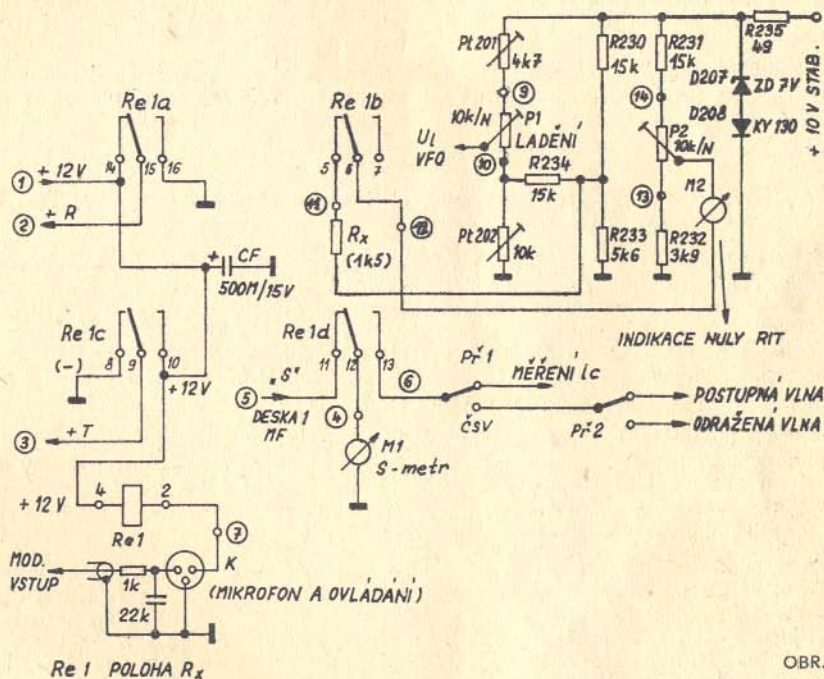 Re 1a
14
15
16
① + 12V
② + R
+ CF
500M/15V
Re 1c
(-)
8
9
10
+12V
③ + T
+ 12 V
4
2
Re1
⑦
MOD.
VSTUP
1k
22k
K
(MIKROFON A OVLÁDÁNÍ)
Re 1 POLOHA Rx
Re 1b
5
6
7
⑪
Rx
(1k5)
⑫
Re1d
11
12
13
⑤ „S"
DESKA 1
MF
④
M1
S-metr
⑥
Př 1
MĚŘENÍ Ic
ČSV
Př 2
POSTUPNÁ VLNA
ODRAŽENÁ VLNA
Pt 201
4k7
⑨
10k/N
P1
LADĚNÍ
UL
VFO
⑩
R234
15k
Pt202
10k
R230
15k
R233
5k6
R231
15k
⑭
P2
10k/N
⑬
R232
3k9
M2
INDIKACE NULY RIT
D207
ZD 7V
D208
KY 130
R235
49
+ 10 V STAB.
OBR.